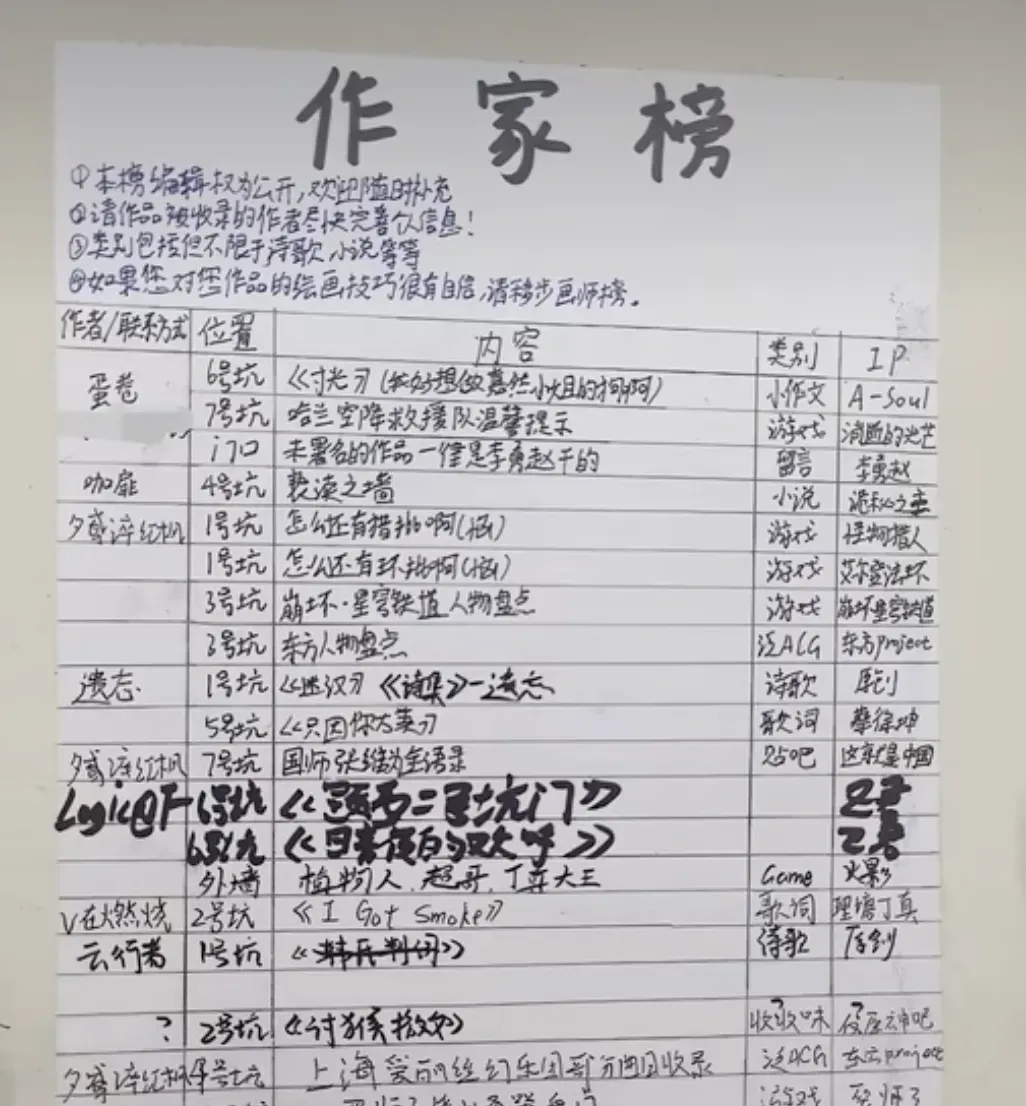 作家榜
①本榜编辑权为公开,欢迎随时补充
②请作品被收录的作者尽快完善个人信息!
③类别包括但不限于诗歌,小说等等
④如果您对您作品的绘画技巧很有自信,请移步画师榜。
作者/联系方式 位置 内容 类别 IP
蛋卷 6号坑 (我好想做嘉然小姐的狗啊) 小作文 A-Soul
7号坑 哈兰空降救援队温馨提示 游戏 消逝的光芒
门口 未署名的作品一律是李勇赵干的 留言 李勇赵
咖啡 4号坑 亵渎之墙 小说 诡秘之主
夕鸢淬红枫 1号坑 怎么还有猎批啊(恼) 游戏 怪物猎人
1号坑 怎么还有环批啊(恼) 游戏 艾尔登法环
3号坑 崩坏·星穹铁道 人物盘点 游戏 崩坏星穹铁道
3号坑 东方人物盘点 泛ACG 东方project
遗忘 1号坑 《诗集》—遗忘 诗歌 原创
5号坑 《只因你太美》 歌词 蔡徐坤
夕鸢淬红枫 7号坑 国师张维为金语录 贴吧 这就是中国
Logic@F 6号坑
6号坑
外墙 植物人,超哥,丁真大王 Game 火影
V在燃烧 2号坑 《I Got Smoke》 歌词 理塘丁真
云行者 1号坑 诗歌 原创
? 2号坑 《讨猴檄文》
夕鸢淬红枫 4号坑 上海爱丽丝幻乐团 收录 泛ACG 东方project
游戏